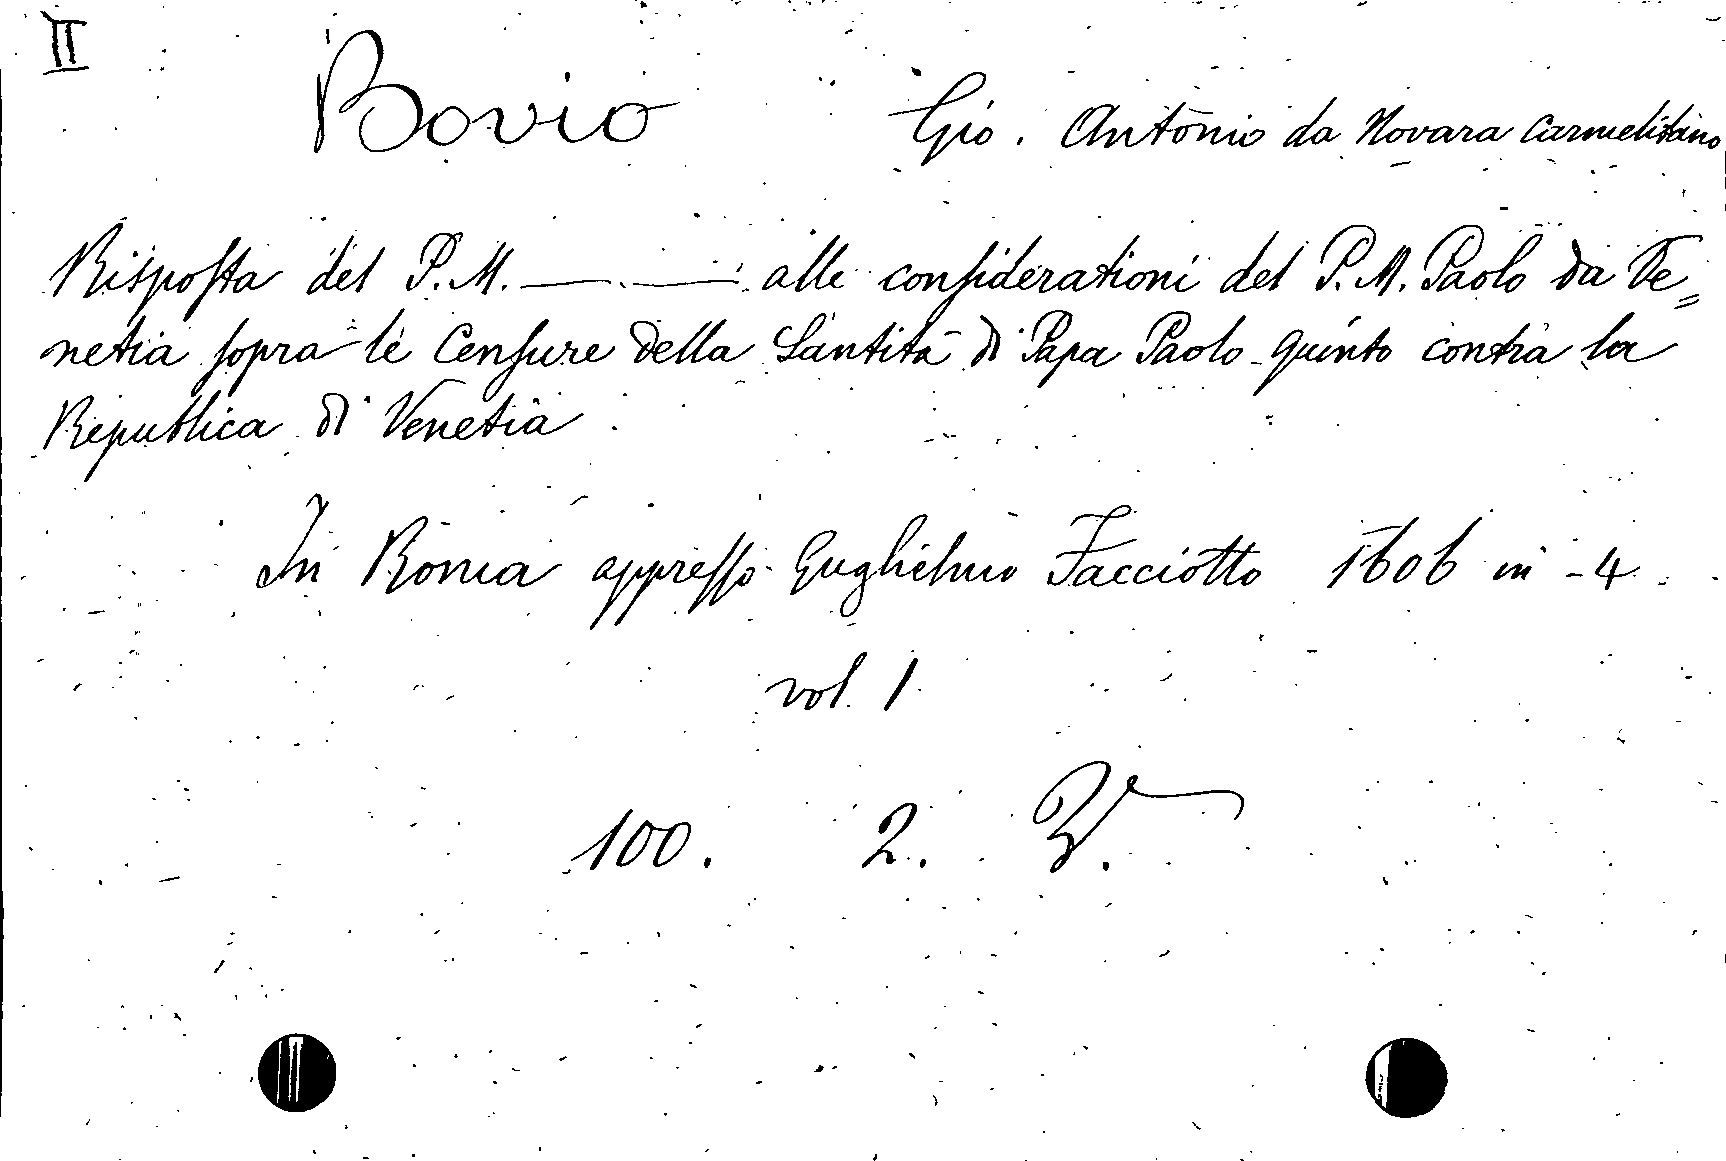 II
Bovio Gio. Antonio da Novara Carmelitano
Risposta del P. M. —— . —— alle considerationi del P. M. Paolo da Ve„
netia sopra le Censure della Santità di Papa Paolo quinto contra la
Republica di Venetia
In Roma appresso Guglielmo Facciotto 1606 in -4.
vol. 1
100. 2.